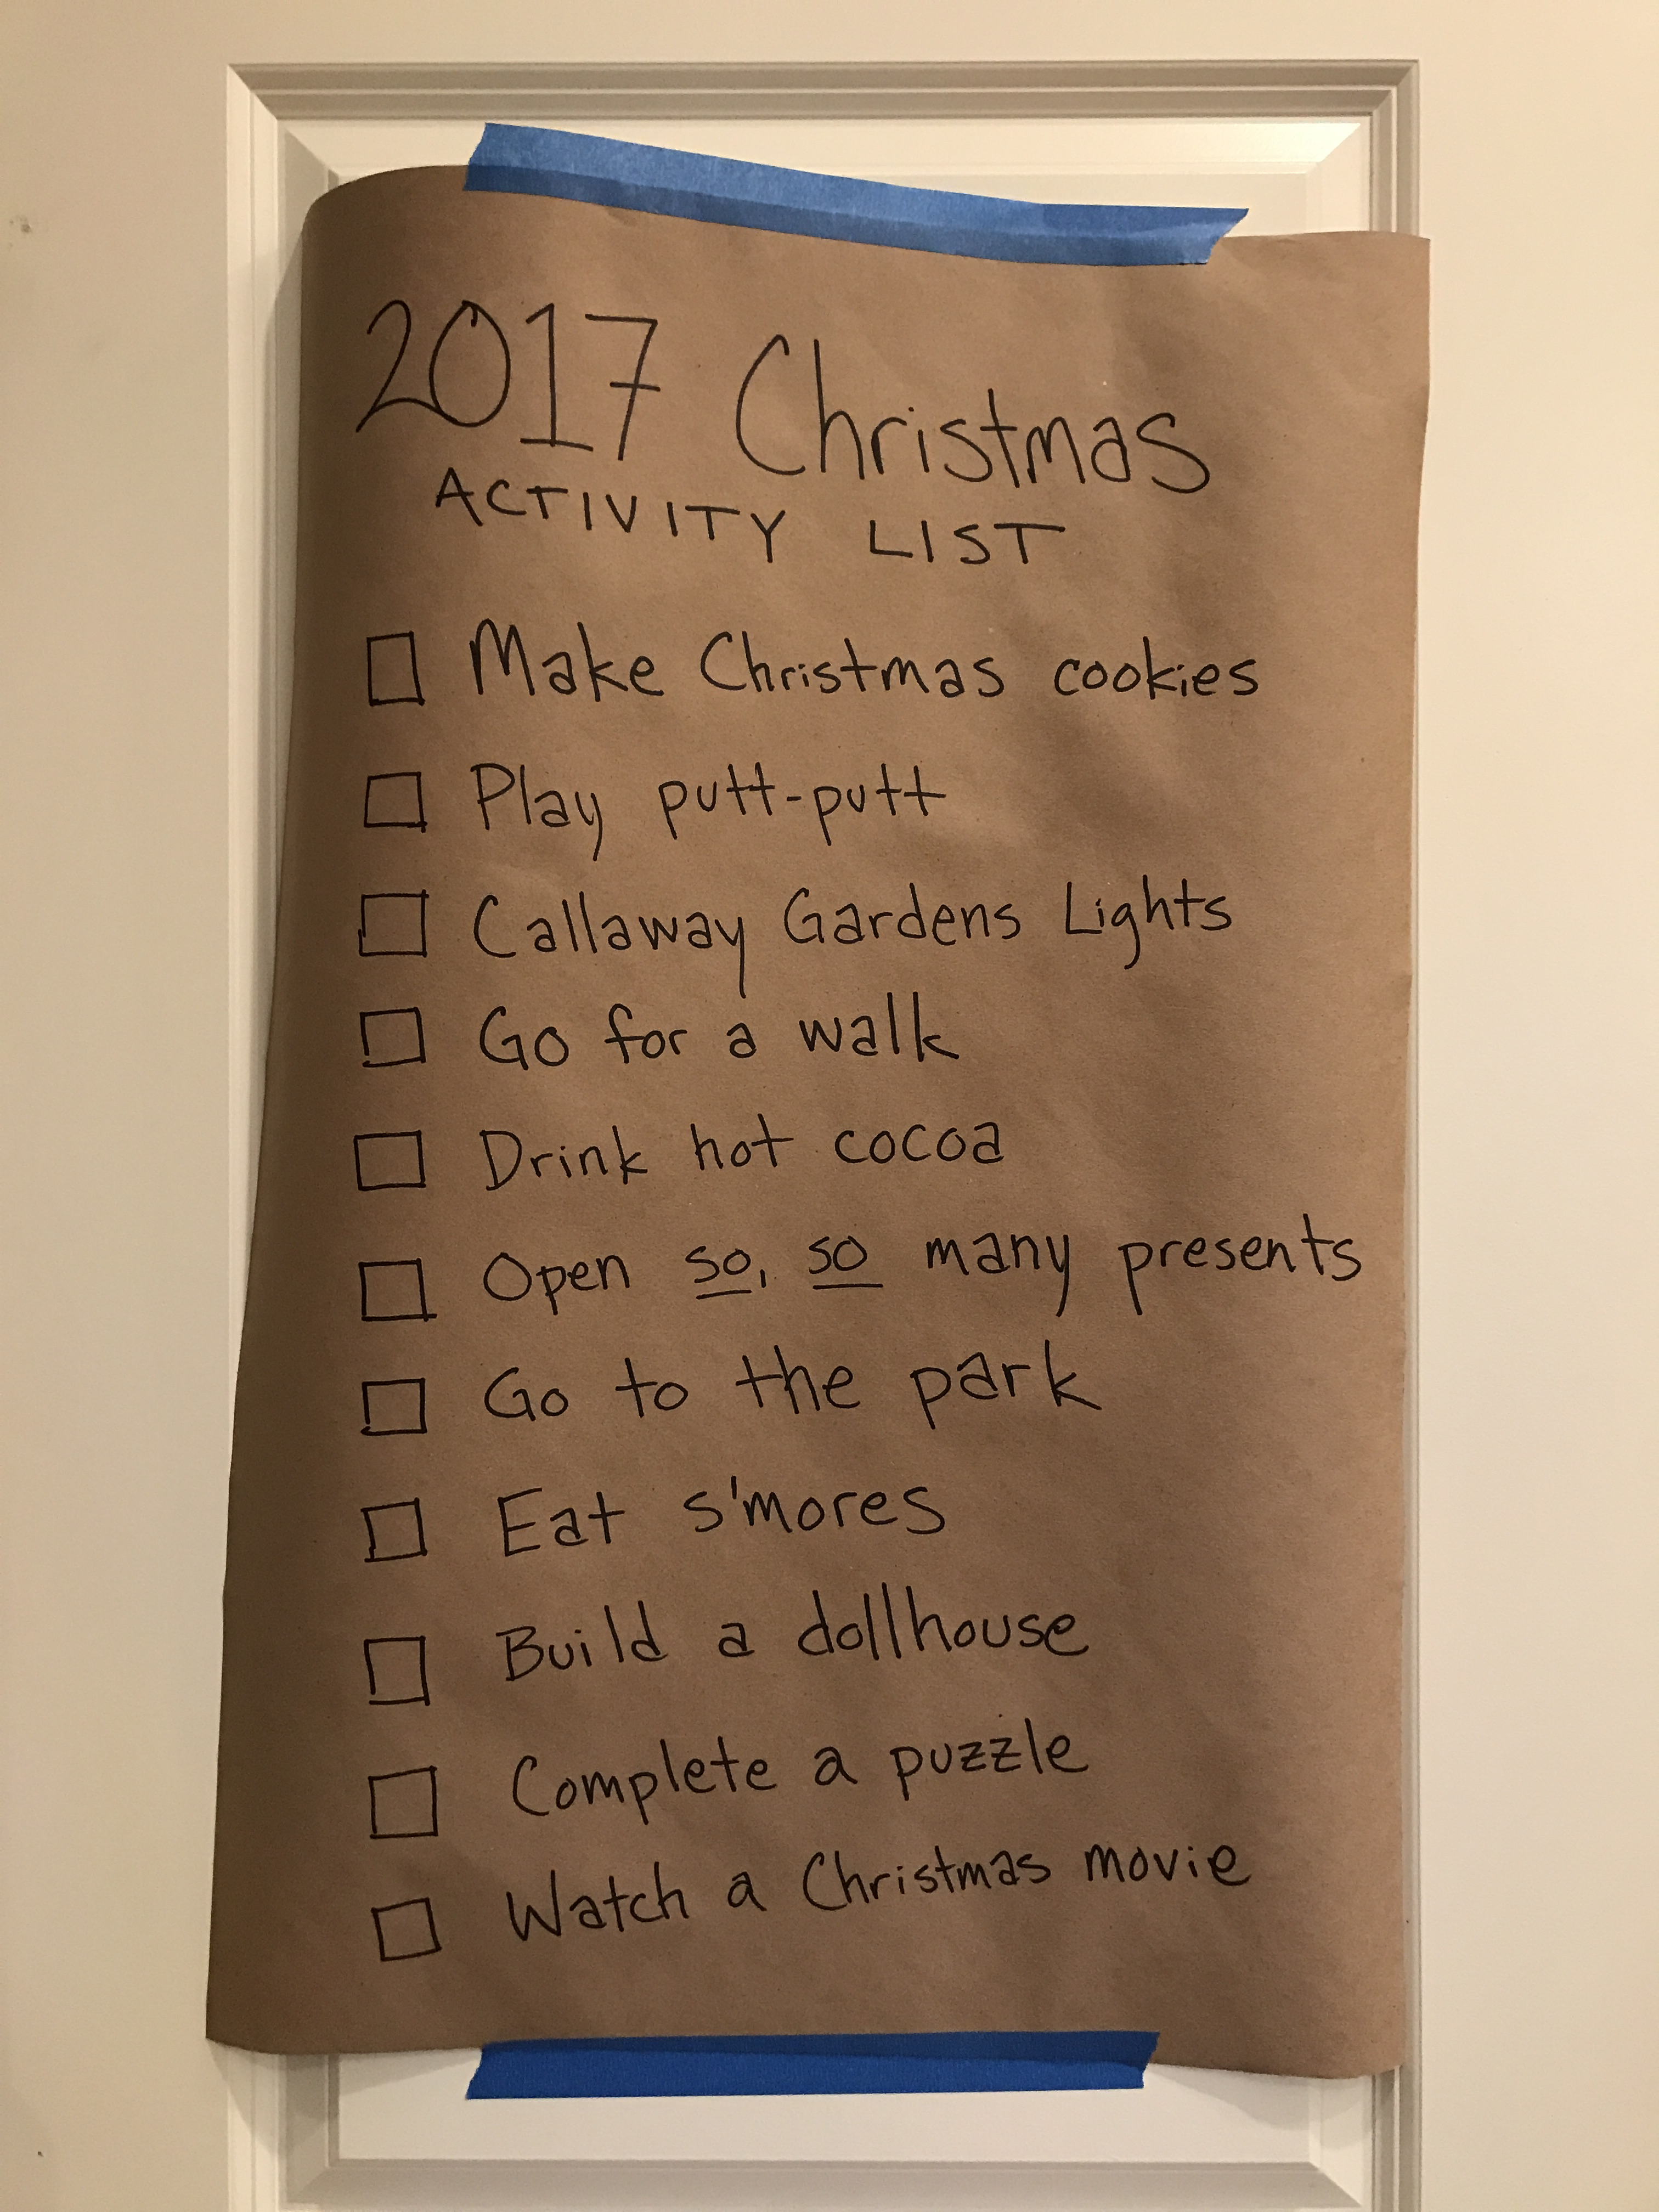 2017 Christmas
ACTIVITY LIST
Make Christmas cookies
Play putt-putt
Callaway Gardens Lights
Go for a walk
Drink hot cocoa
Open so, so many presents
Go to the park
Eat s'mores
Build a dollhouse
Complete a puzzle
Watch a Christmas movie